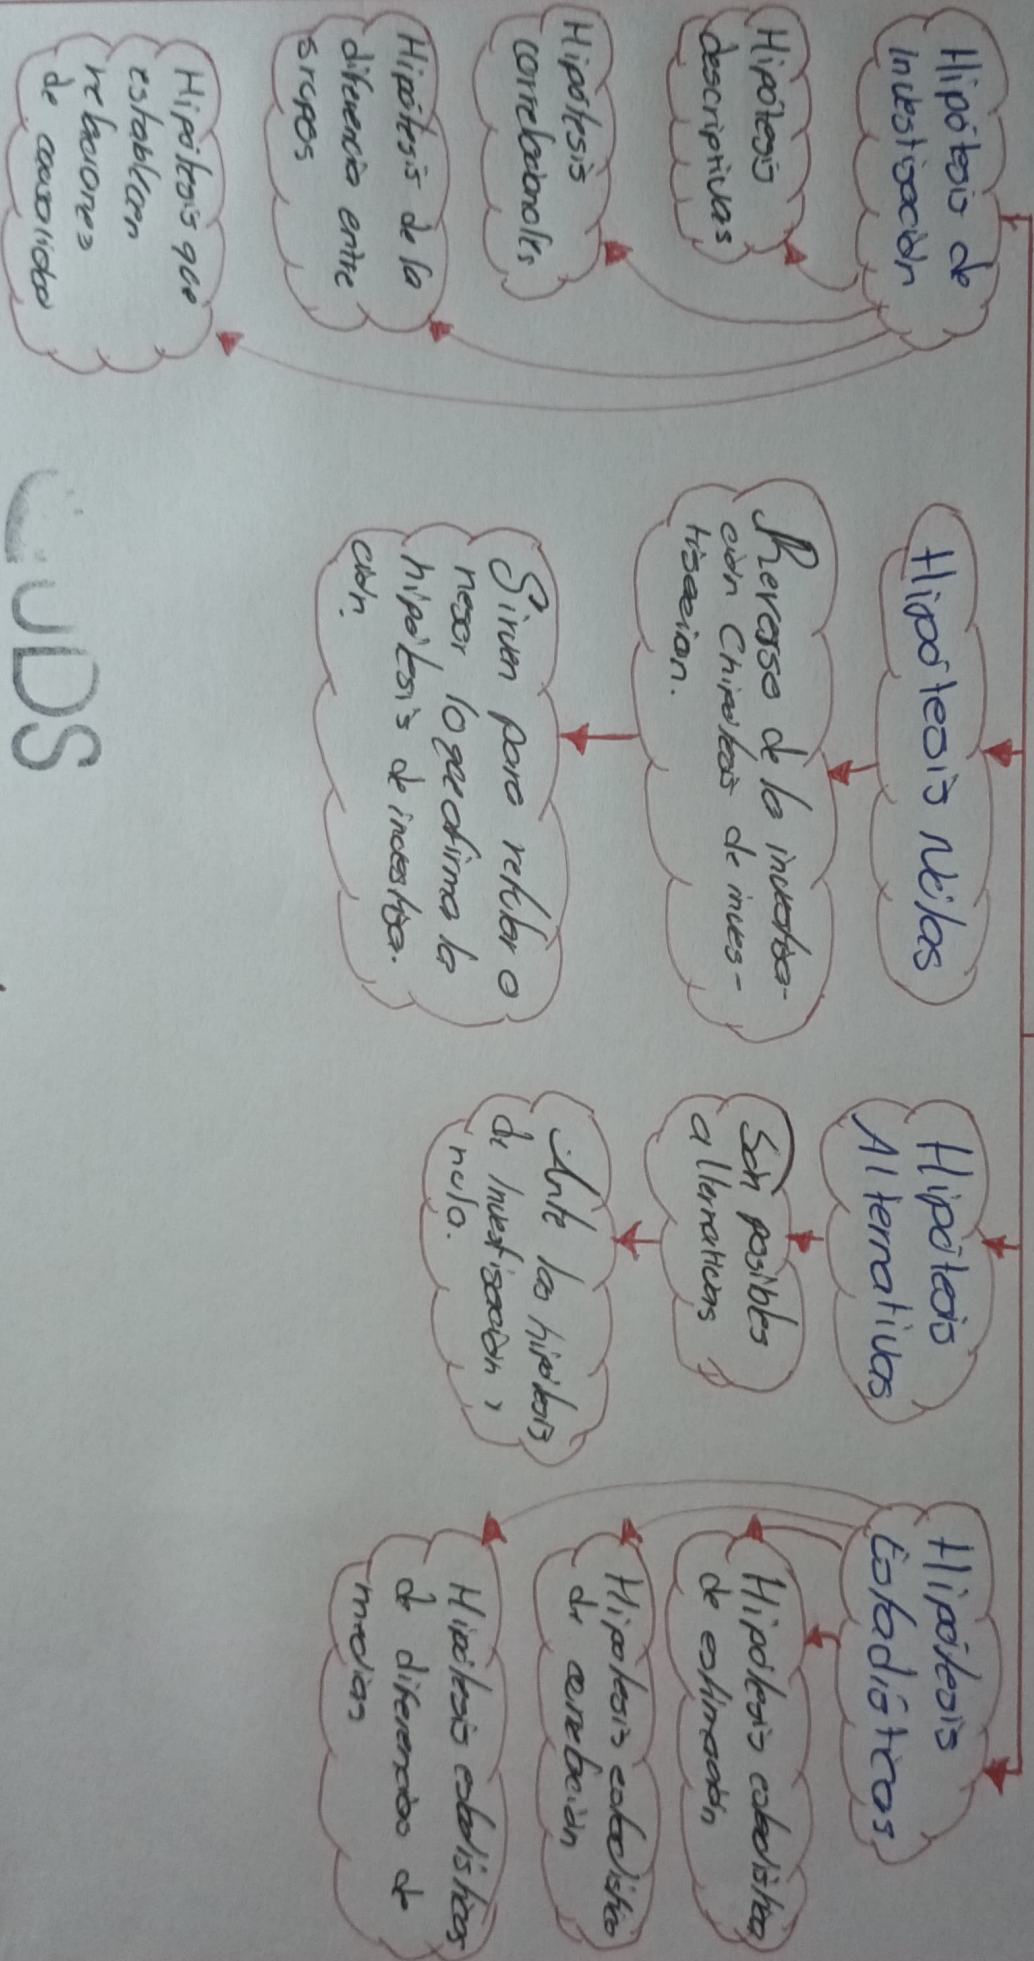 Hipótesis de
Investigación
Hipótesis
descriptivas
Hipótesis
correlacionales
Hipótesis de la
diferencia entre
grupos
Hipótesis que
establecen
relaciones
de causalidad
Hipótesis Nulas
Reverso de la investiga-
ción Chipótesis de inves-
tigación.
Sirven para refutar o
negar lo que afirma la
hipótesis de investiga.
ción.
Hipótesis
Alternativas
Son posibles
alternativas
Ante las hipótesis
de Investigación y
nula.
Hipótesis
Estadísticas
Hipótesis estadística
de estimación
Hipótesis estadística
de correlación
Hipótesis estadísticas
de diferencias de
medias
UDS